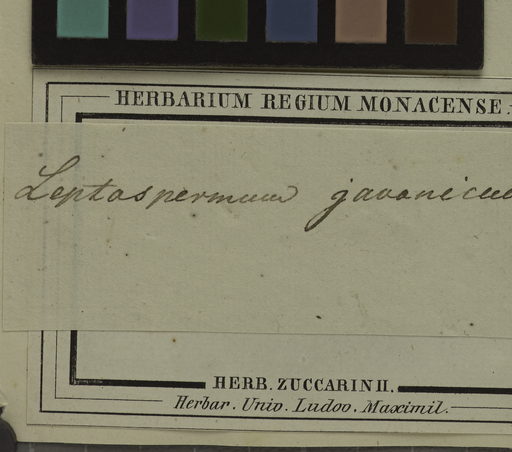 HERBARIUM REGIUM MONACENSE.
Leptospermum javanicu
HERB. ZUCCARINII.
Herbar. Univ. Ludov. Maximil.